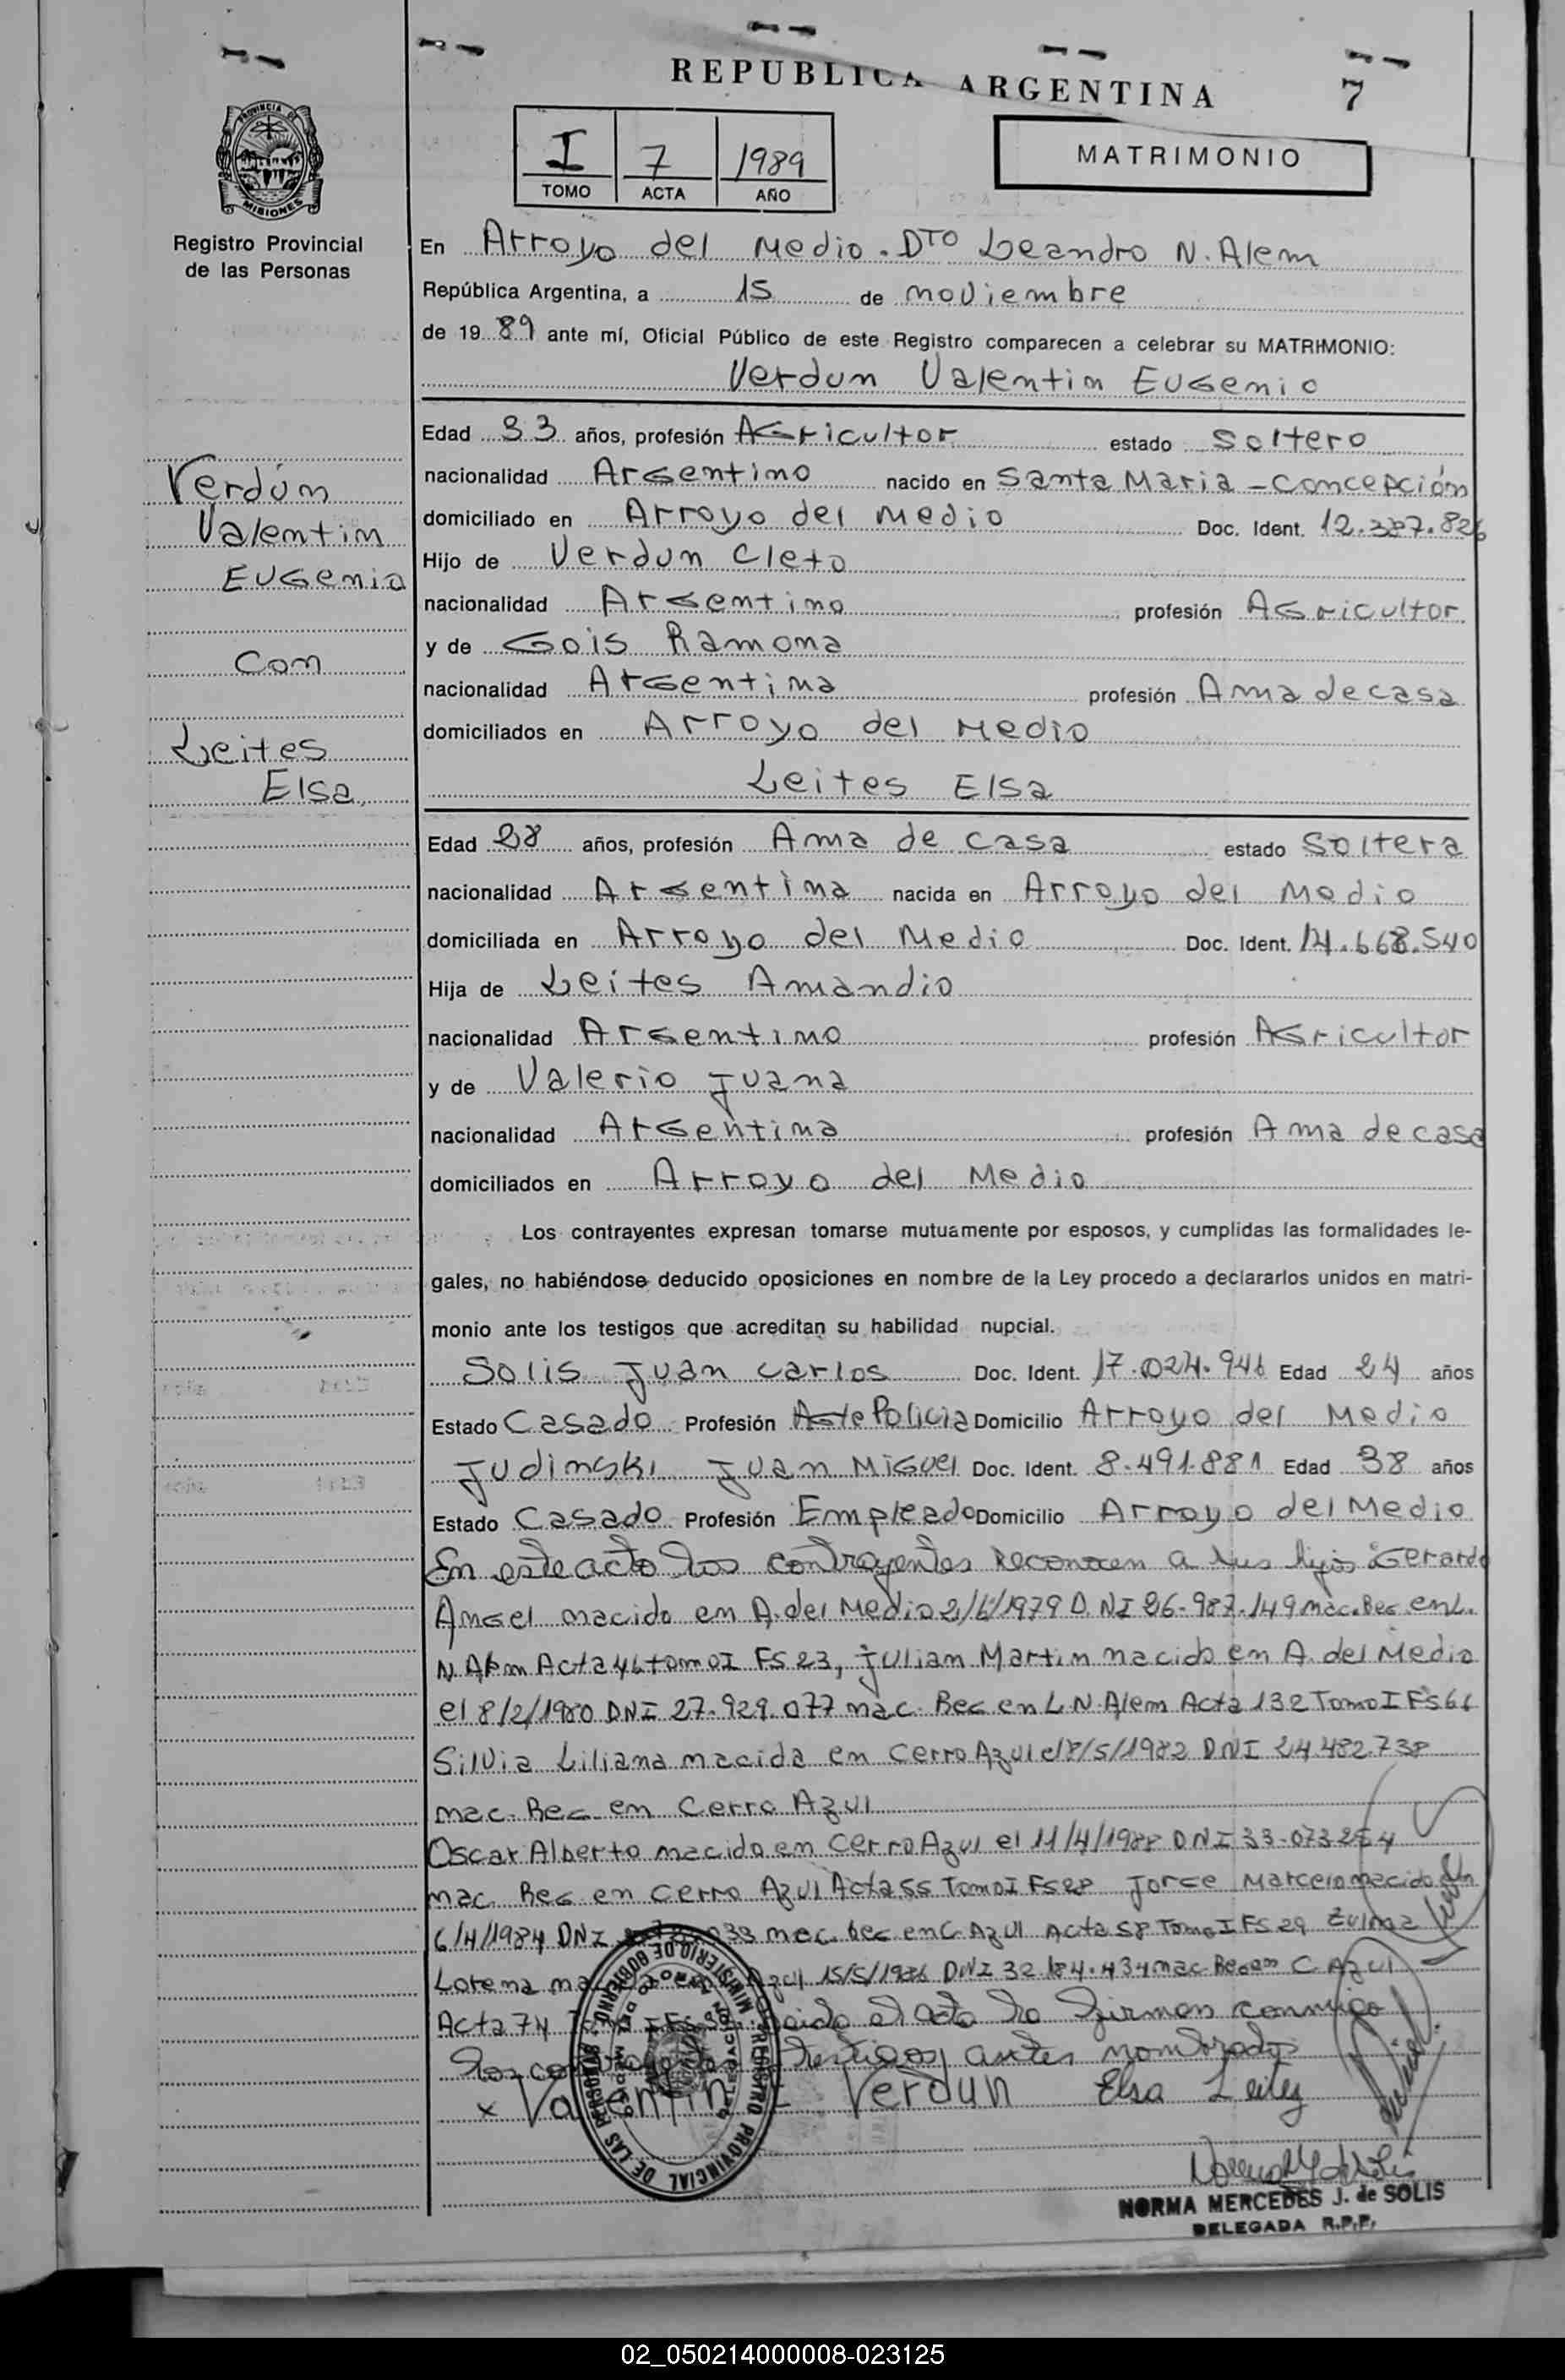 REPUBLICA ARGENTINA 7
PROVINCIA DE MISIONES
Registro Provincial
de las Personas
I 7 1989
TOMO ACTA AÑO
MATRIMONIO
En Arroyo del Medio. Dto Leandro N. Alem
República Argentina, a 15 de noviembre
de 1989 ante mí, Oficial Público de este Registro comparecen a celebrar su MATRIMONIO:
Verdun Valentin Eugenio
Verdún
Valentin
Eugenio
Con
Leites
Elsa
Edad 33 años, profesión Agricultor estado Soltero
nacionalidad Argentino nacido en Santa Maria - Concepción
domiciliado en Arroyo del Medio Doc. Ident. 12.387.826
Hijo de Verdun Cleto
nacionalidad Argentino profesión Agricultor
y de Gois Ramona
nacionalidad Argentina profesión Ama de casa
domiciliados en Arroyo del Medio
Leites Elsa
Edad 28 años, profesión Ama de casa estado Soltera
nacionalidad Argentina nacida en Arroyo del Medio
domiciliada en Arroyo del Medio Doc. Ident. 14.668.540
Hija de Leites Amandio
nacionalidad Argentino profesión Agricultor
y de Valerio Juana
nacionalidad Argentina profesión Ama de casa
domiciliados en Arroyo del Medio
Los contrayentes expresan tomarse mutuamente por esposos, y cumplidas las formalidades le-
gales, no habiéndose deducido oposiciones en nombre de la Ley procedo a declararlos unidos en matri-
monio ante los testigos que acreditan su habilidad nupcial.
Solis Juan Carlos Doc. Ident. 17.024.946 Edad 24 años
Estado Casado Profesión Agte Policia Domicilio Arroyo del Medio
Judinski Juan Miguel Doc. Ident. 8.491.881 Edad 38 años
Estado Casado Profesión Empleado Domicilio Arroyo del Medio
En este acto los contrayentes reconocen a sus hijos Gerardo
Angel nacido en A. del Medio 2/6/1979 D.NI 26.987.149 nac. Rec en L.
N Alem Acta 46 tomo I Fs 23, Julian Martin nacido en A. del Medio
el 8/2/1980 DNI 27.929.077 nac. Rec en L N. Alem Acta 132 Tomo I Fs 66
Silvia Liliana nacida en Cerro Azul el 8/5/1982 DNI 24 482.738
nac. Rec en Cerro Azul
Oscar Alberto nacido en Cerro Azul el 11/4/1988 DNI 33.073254
nac. Rec en Cerro Azul Acta 55 Tomo I Fs 28 Jorge Marcelo nacido en
6/4/1984 DNI 033 nac. Rec en C. Azul Acta 58 Tomo I FS 29 Zulma
Lorena Azul 15/5/1986 DNI 32.184.434 nac Rec en C. Azul
Acta 74 leido el acta la firman conmigo
los contrayentes testigos antes nombrados
x Valentin E Verdun Elsa Leites
MINISTERIO DE GOBIERNO
REGISTRO PROVINCIAL DE LAS PERSONAS
DELEGACION
ARROYO DEL MEDIO
NORMA MERCEDES J. de SOLIS
DELEGADA R.P.P.
02_050214000008-023125